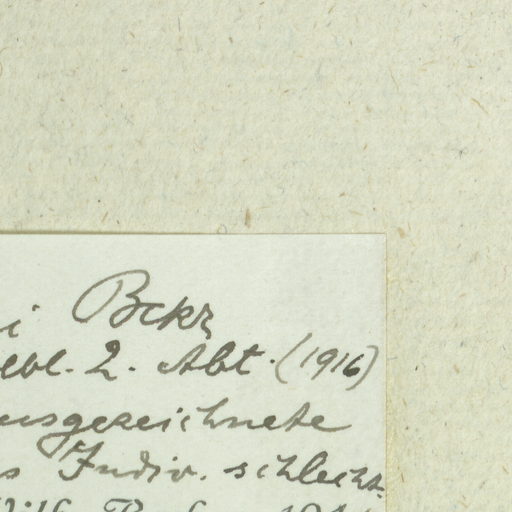 i Bckr
elbl. 2. Abt. (1916)
usgezeichnete
s Indiv. schlecht